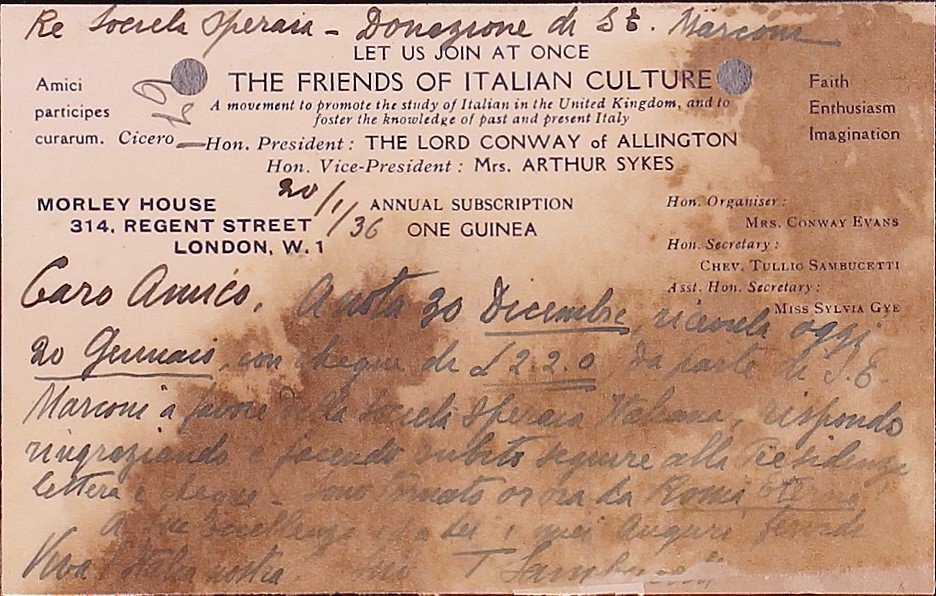 Re Societa Operaia – Donazione di S.E. Marconi
LET US JOIN AT ONCE
THE FRIENDS OF ITALIAN CULTURE
A movement to promote the study of Italian in the United Kingdom, and to
foster the knowledge of past and present Italy
Amici
participes
curarum. Cicero
Faith
Enthusiasm
Imagination
Hon. President: THE LORD CONWAY of ALLINGTON
Hon. Vice-President: Mrs. ARTHUR SYKES
MORLEY HOUSE
314, REGENT STREET
LONDON, W.1
20/1/36
ANNUAL SUBSCRIPTION
ONE GUINEA
Hon. Organiser:
MRS. CONWAY EVANS
Hon. Secretary:
CHEV. TULLIO SAMBUCETTI
Asst. Hon. Secretary:
MISS SYLVIA GYE
Caro Amico, A nota 30 Dicembre, ricevuta oggi
20 Gennaio, con cheque di £2.2.0 da parte di S.E.
Marconi a favore della Societa Operaia Italiana, rispondo
ringraziando e facendo subito seguire alla Presidenza
lettera e cheque – Sono tornato or ora da Roma
A Sua Eccellenza e a Lei i miei auguri fervidi
Viva l'Italia nostra. T Sambucetti